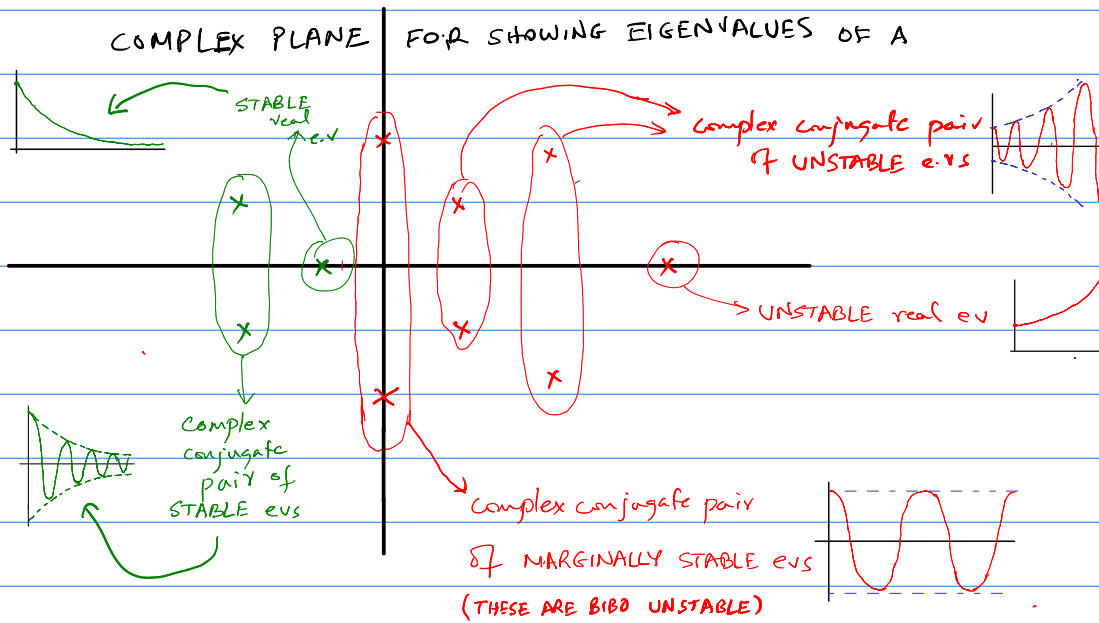 COMPLEX PLANE FOR SHOWING EIGENVALUES OF A
STABLE
real
e.v
complex conjugate pair
of UNSTABLE e.vs
UNSTABLE real ev
complex
conjugate
pair of
STABLE evs
complex conjugate pair
of MARGINALLY STABLE evs
(THESE ARE BIBO UNSTABLE)